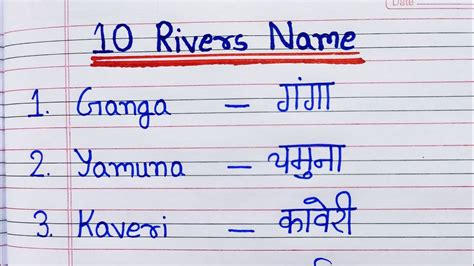 Date
10 Rivers Name
1. Ganga – गंगा
2. Yamuna – यमुना
3. Kaveri – कावेरी